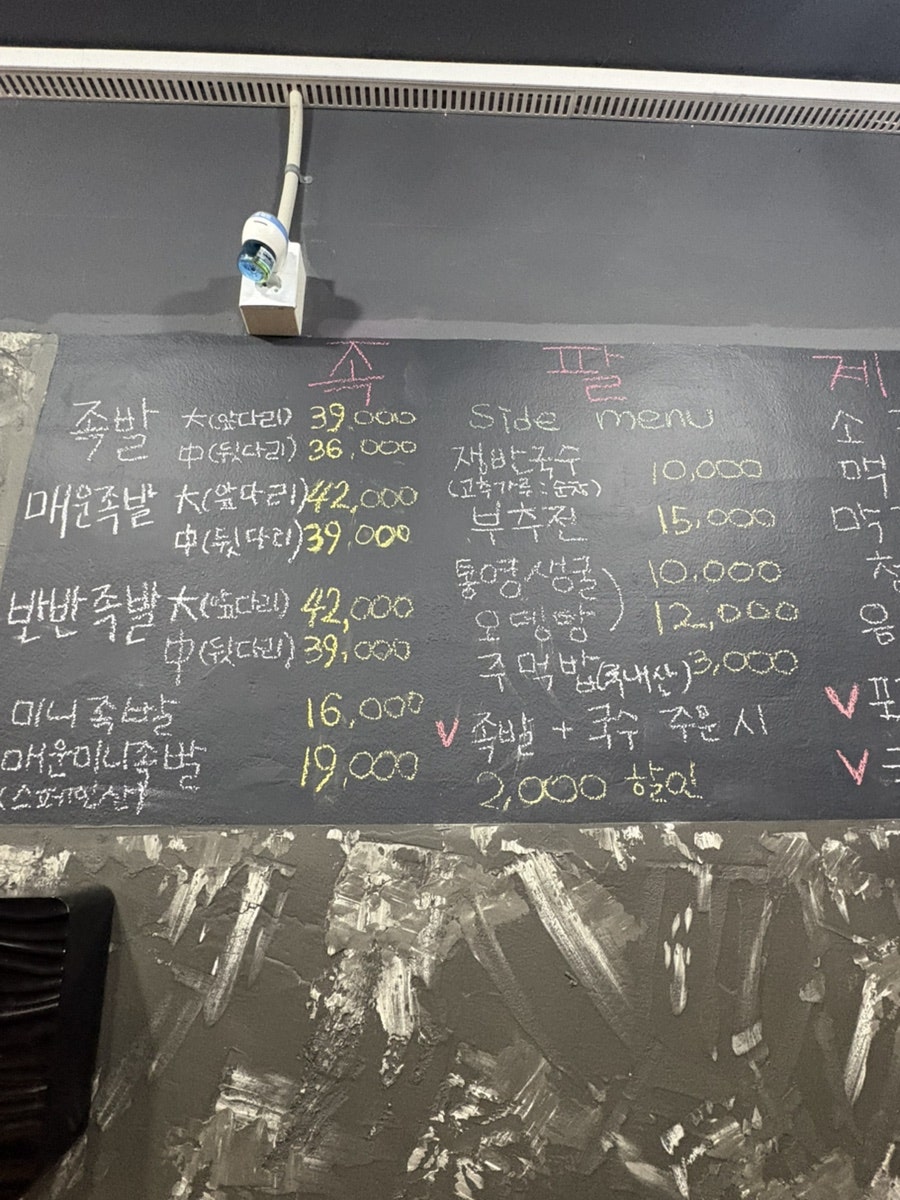 족 팔 제
족발 大(앞다리) 39,000
中(뒷다리) 36,000
매운족발 大(앞다리) 42,000
中(뒷다리) 39,000
반반족발 大(앞다리) 42,000
中(뒷다리) 39,000
미니족발 16,000
매운미니족발 19,000
(스페인산)
Side menu
쟁반국수 10,000
(고춧가루:
부추전 15,000
통영생굴 10,000
오뎅탕 12,000
주먹밥(국내산) 3,000
V 족발 + 국수 주문시
2,000 할인
소
먹
막
청
음
V 포
V